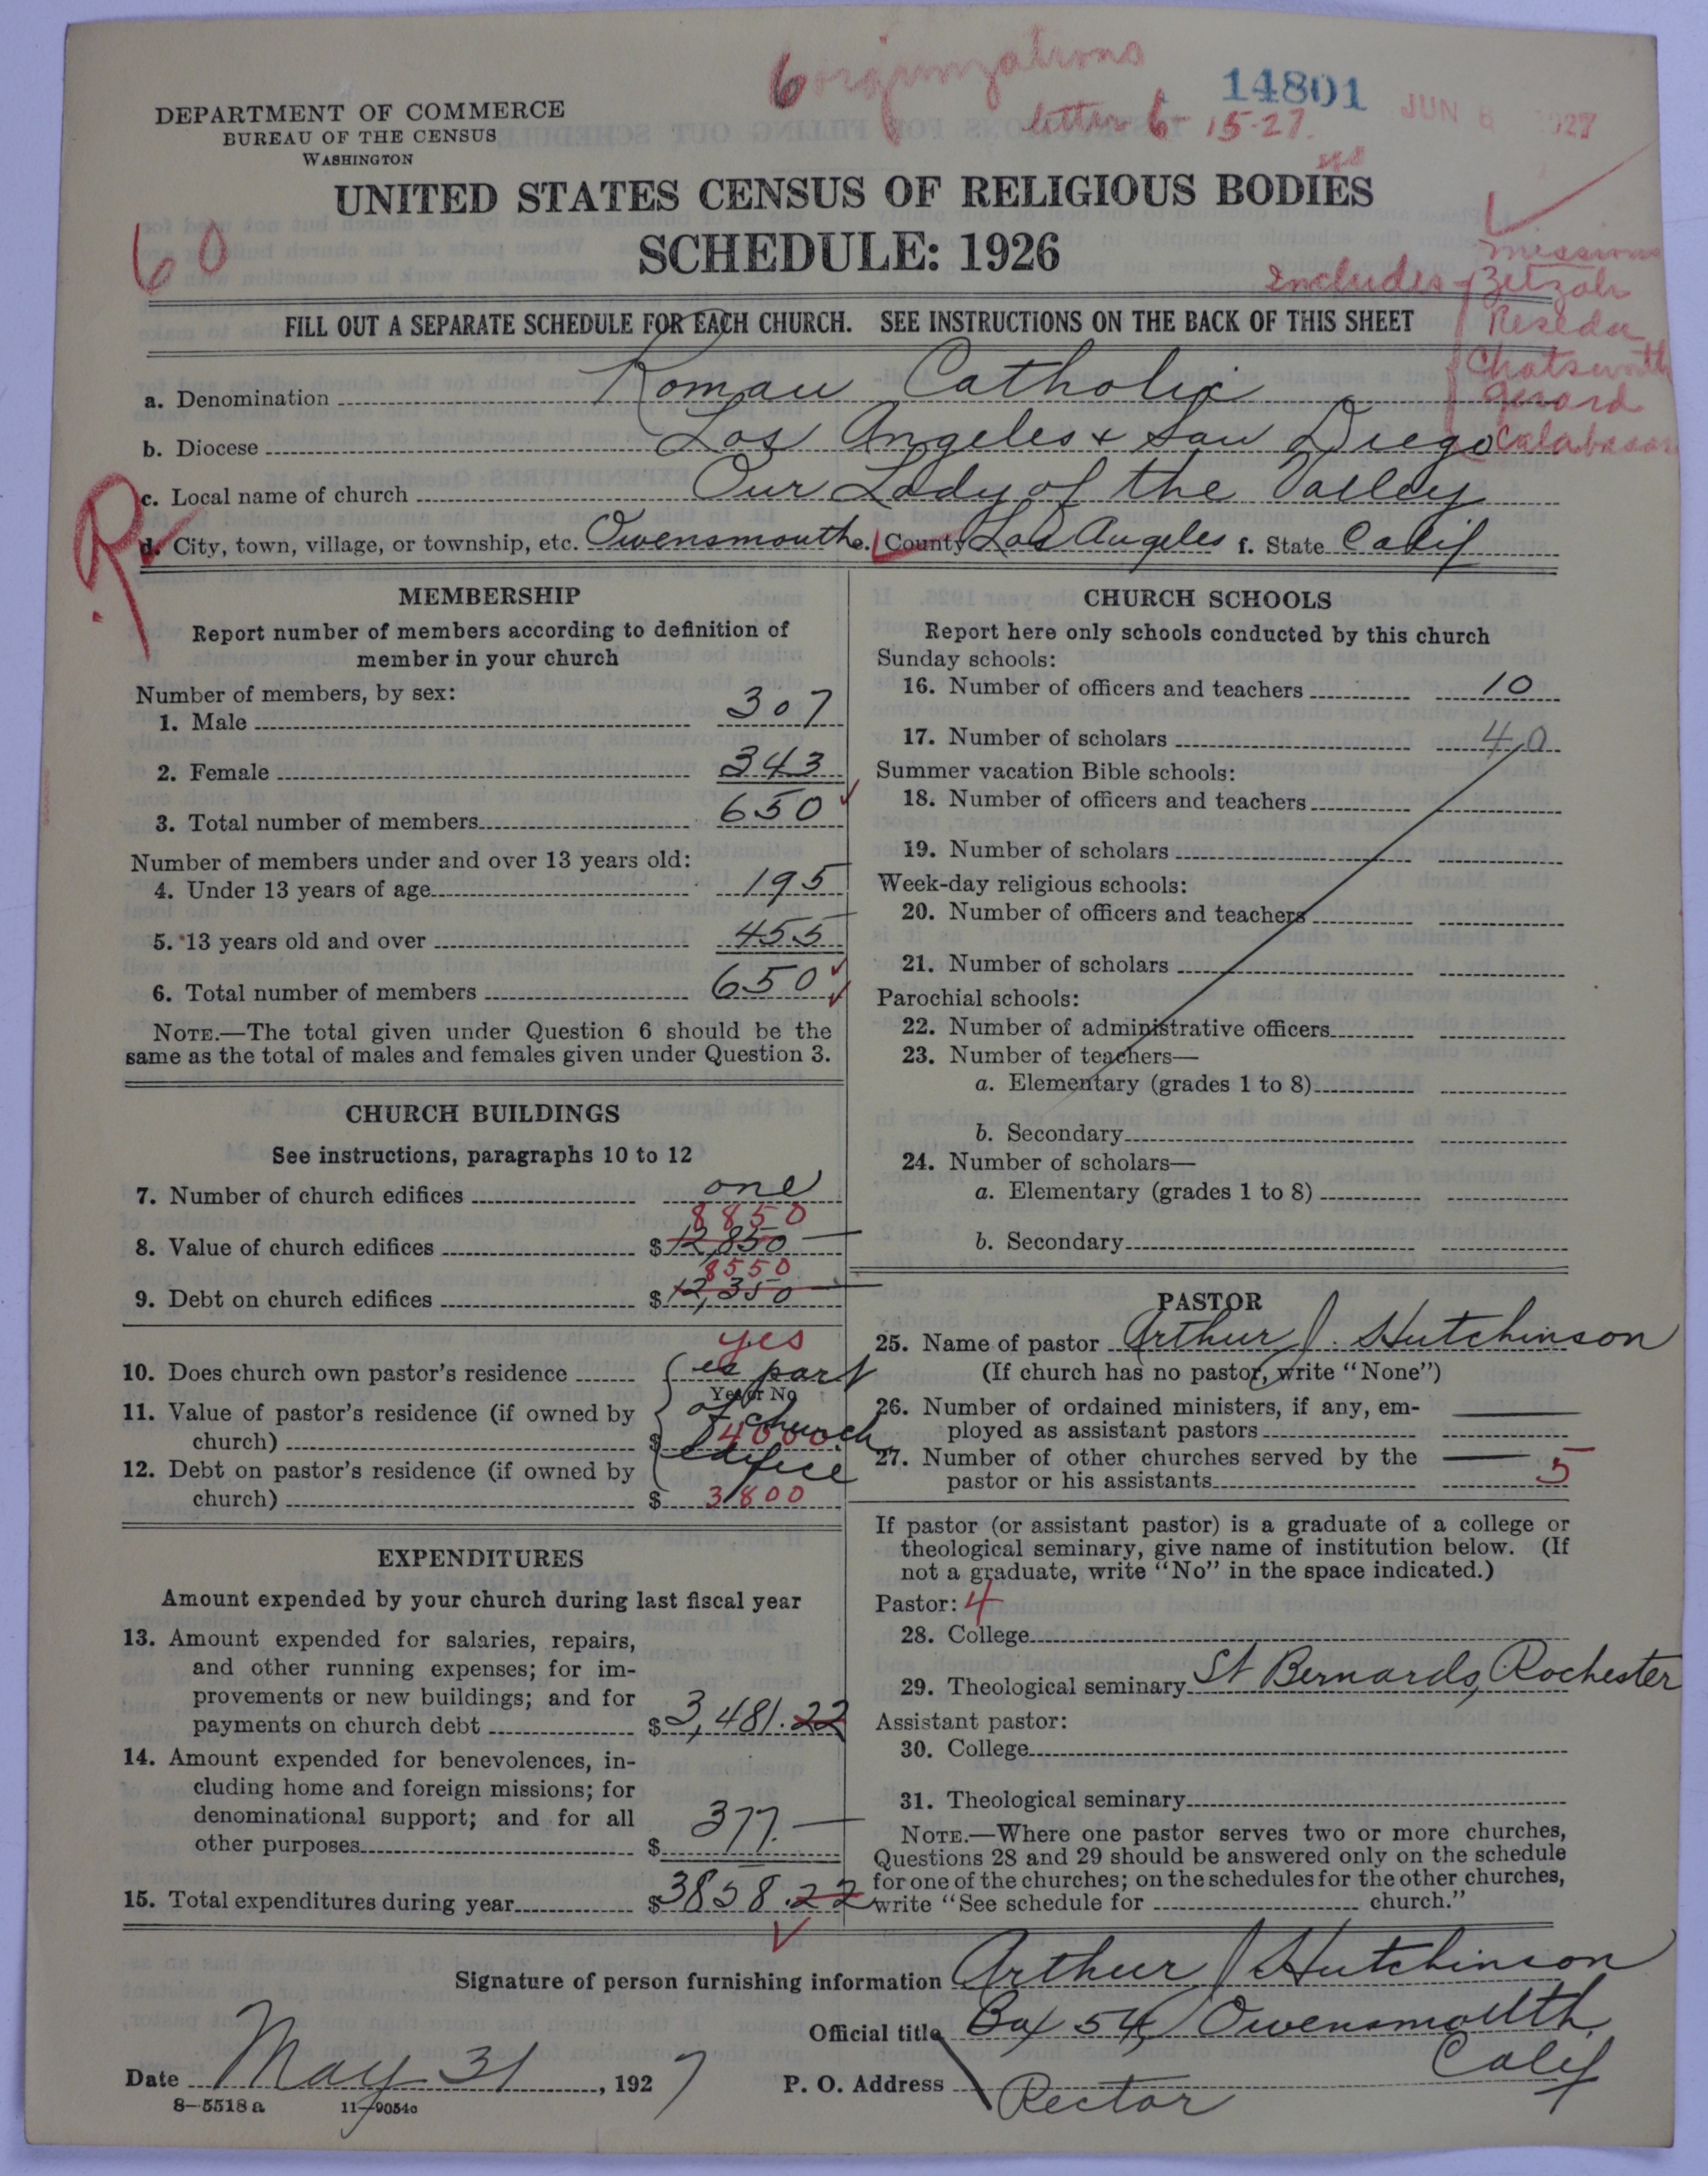 6 organizations
letter 6-15-27.
14801
JUN 6 1927
DEPARTMENT OF COMMERCE
BUREAU OF THE CENSUS
WASHINGTON
UNITED STATES CENSUS OF RELIGIOUS BODIES
SCHEDULE: 1926
60
Includes
missions
Zelzah
Reseda
Chatsworth
Gerard
Calabasas
FILL OUT A SEPARATE SCHEDULE FOR EACH CHURCH. SEE INSTRUCTIONS ON THE BACK OF THIS SHEET
a. Denomination Roman Catholic
b. Diocese Los Angeles & San Diego
c. Local name of church Our Lady of the Valley
R
d. City, town, village, or township, etc. Owensmouth e. County Los Angeles f. State Calif
MEMBERSHIP
Report number of members according to definition of
member in your church
Number of members, by sex:
1. Male 307
2. Female 343
3. Total number of members 650
Number of members under and over 13 years old:
4. Under 13 years of age 195
5. 13 years old and over 455
6. Total number of members 650
NOTE.—The total given under Question 6 should be the
same as the total of males and females given under Question 3.
CHURCH BUILDINGS
See instructions, paragraphs 10 to 12
7. Number of church edifices one
8850
8. Value of church edifices $12,850
8550
9. Debt on church edifices $12,350
yes
10. Does church own pastor's residence is part
Yes or No
of church
edifice
11. Value of pastor's residence (if owned by
church) $ 4000
12. Debt on pastor's residence (if owned by
church) $ 3800
EXPENDITURES
Amount expended by your church during last fiscal year
13. Amount expended for salaries, repairs,
and other running expenses; for im-
provements or new buildings; and for
payments on church debt $3,481.22
14. Amount expended for benevolences, in-
cluding home and foreign missions; for
denominational support; and for all
other purposes $ 377.—
15. Total expenditures during year $3858.22
CHURCH SCHOOLS
Report here only schools conducted by this church
Sunday schools:
16. Number of officers and teachers 10
17. Number of scholars 40
Summer vacation Bible schools:
18. Number of officers and teachers
19. Number of scholars
Week-day religious schools:
20. Number of officers and teachers
21. Number of scholars
Parochial schools:
22. Number of administrative officers
23. Number of teachers—
a. Elementary (grades 1 to 8)
b. Secondary
24. Number of scholars—
a. Elementary (grades 1 to 8)
b. Secondary
PASTOR
25. Name of pastor Arthur J. Hutchinson
(If church has no pastor, write "None")
26. Number of ordained ministers, if any, em-
ployed as assistant pastors
27. Number of other churches served by the
pastor or his assistants 5
If pastor (or assistant pastor) is a graduate of a college or
theological seminary, give name of institution below. (If
not a graduate, write "No" in the space indicated.)
Pastor: 4
28. College
29. Theological seminary St Bernards, Rochester
Assistant pastor:
30. College
31. Theological seminary
NOTE.—Where one pastor serves two or more churches,
Questions 28 and 29 should be answered only on the schedule
for one of the churches; on the schedules for the other churches,
write "See schedule for church."
Signature of person furnishing information Arthur J Hutchinson
Official title Box 54, Owensmouth
Calif
Date May 31, 1927 P. O. Address Rector
8-5518 a 11-9054c